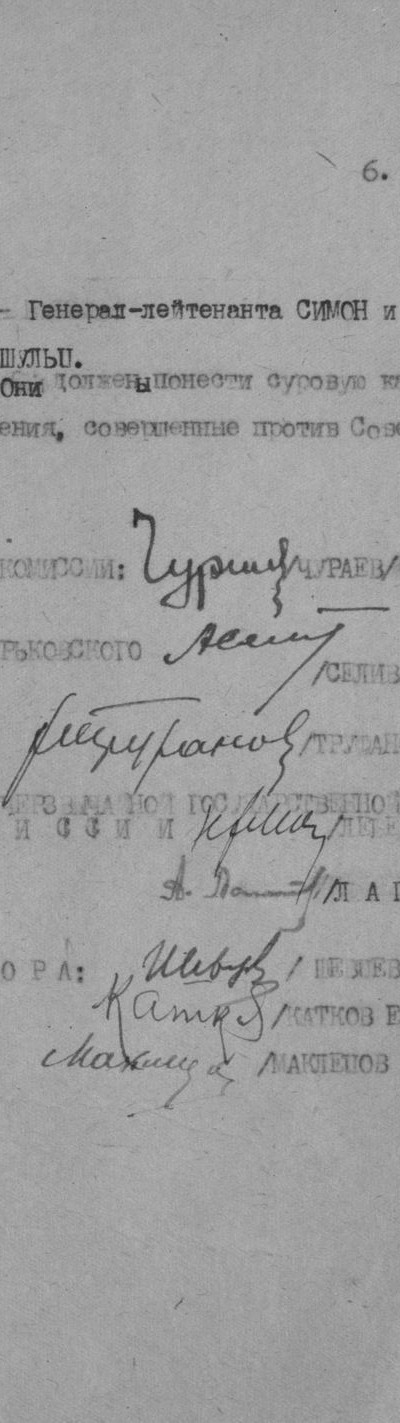 6.
- Генерал-лейтенанта СИМОН и
ШУЛЬЦ.
Они должены понести суровую
ения, совершенные против
КОМИССИИ: Чураев /ЧУРАЕВ/
РЬКОВСКОГО
/СЕЛИВ
Труфанов /ТРУФАН
ЧЕРЗВЫЧАЙНОЙ ГОСУДАРСТВЕННОЙ
И С С И И
А. /Л А Г
О Р А: / ШЕВЦЕВ
Катков /КАТКОВ Е
Маклецов /МАКЛЕЦОВ